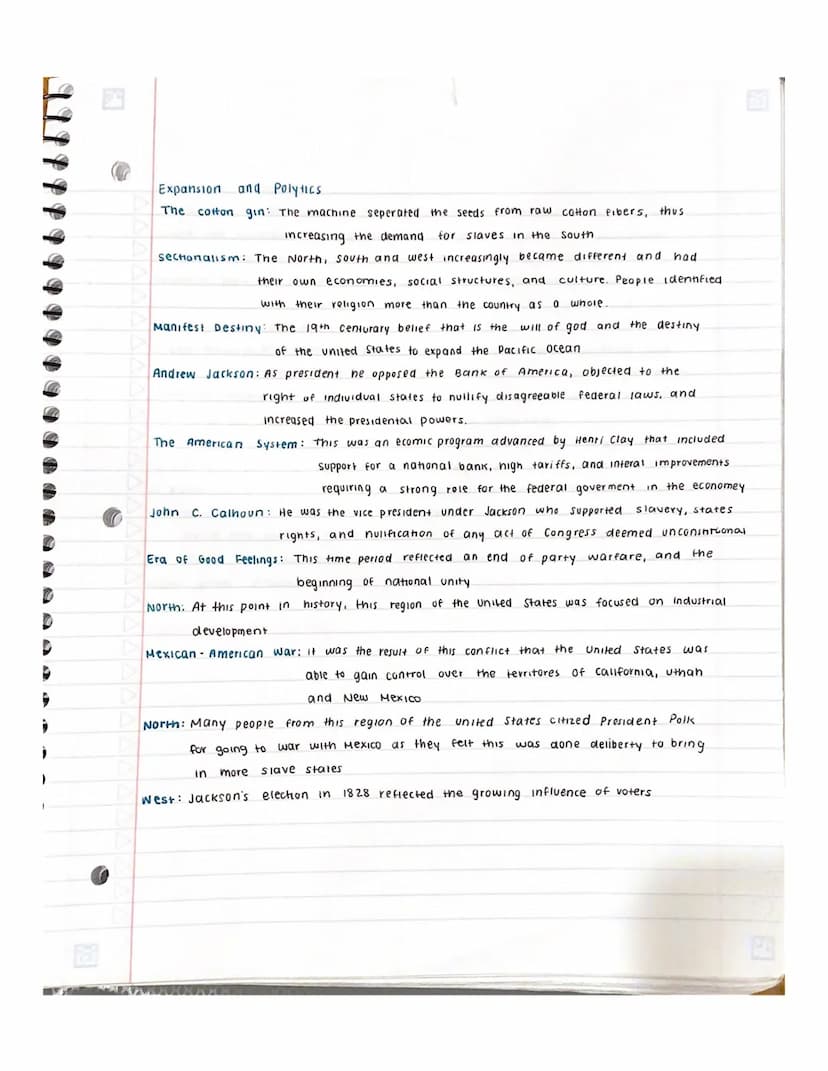 Expansion and Polytics
The cotton gin: The machine seperated the seeds from raw cotton fibers, thus
increasing the demand for slaves in the South
Sectionalism: The North, South and west increasingly became different and had
their own economies, social structures, and culture. People identified
with their religion more than the country as a whole.
Manifest Destiny: The 19th Centurary belief that is the will of god and the destiny
of the United States to expand the Pacific Ocean
Andrew Jackson: As president he opposed the Bank of America, objected to the
right of individual states to nullify disagreeable federal laws, and
increased the presidental powers.
The American System: This was an ecomic program advanced by Henri Clay that included
support for a national bank, high tariffs, and interal improvements
requiring a strong role for the federal goverment in the economey
John C. Calhoun: He was the vice president under Jackson who supported slavery, states
rights, and nulification of any act of Congress deemed
Era of Good Feelings: This time period reflected an end of party warfare, and the
beginning of national unity
North: At this point in history, this region of the United States was focused on industrial
development
Mexican-American War: it was the result of this conflict that the United States was
able to gain control over the territores of California, Uthah
and New Mexico
North: Many people from this region of the United States citized President Polk
for going to war with Mexico as they felt this was done deliberty to bring
in more slave states
West: Jackson's election in 1828 reflected the growing influence of voters